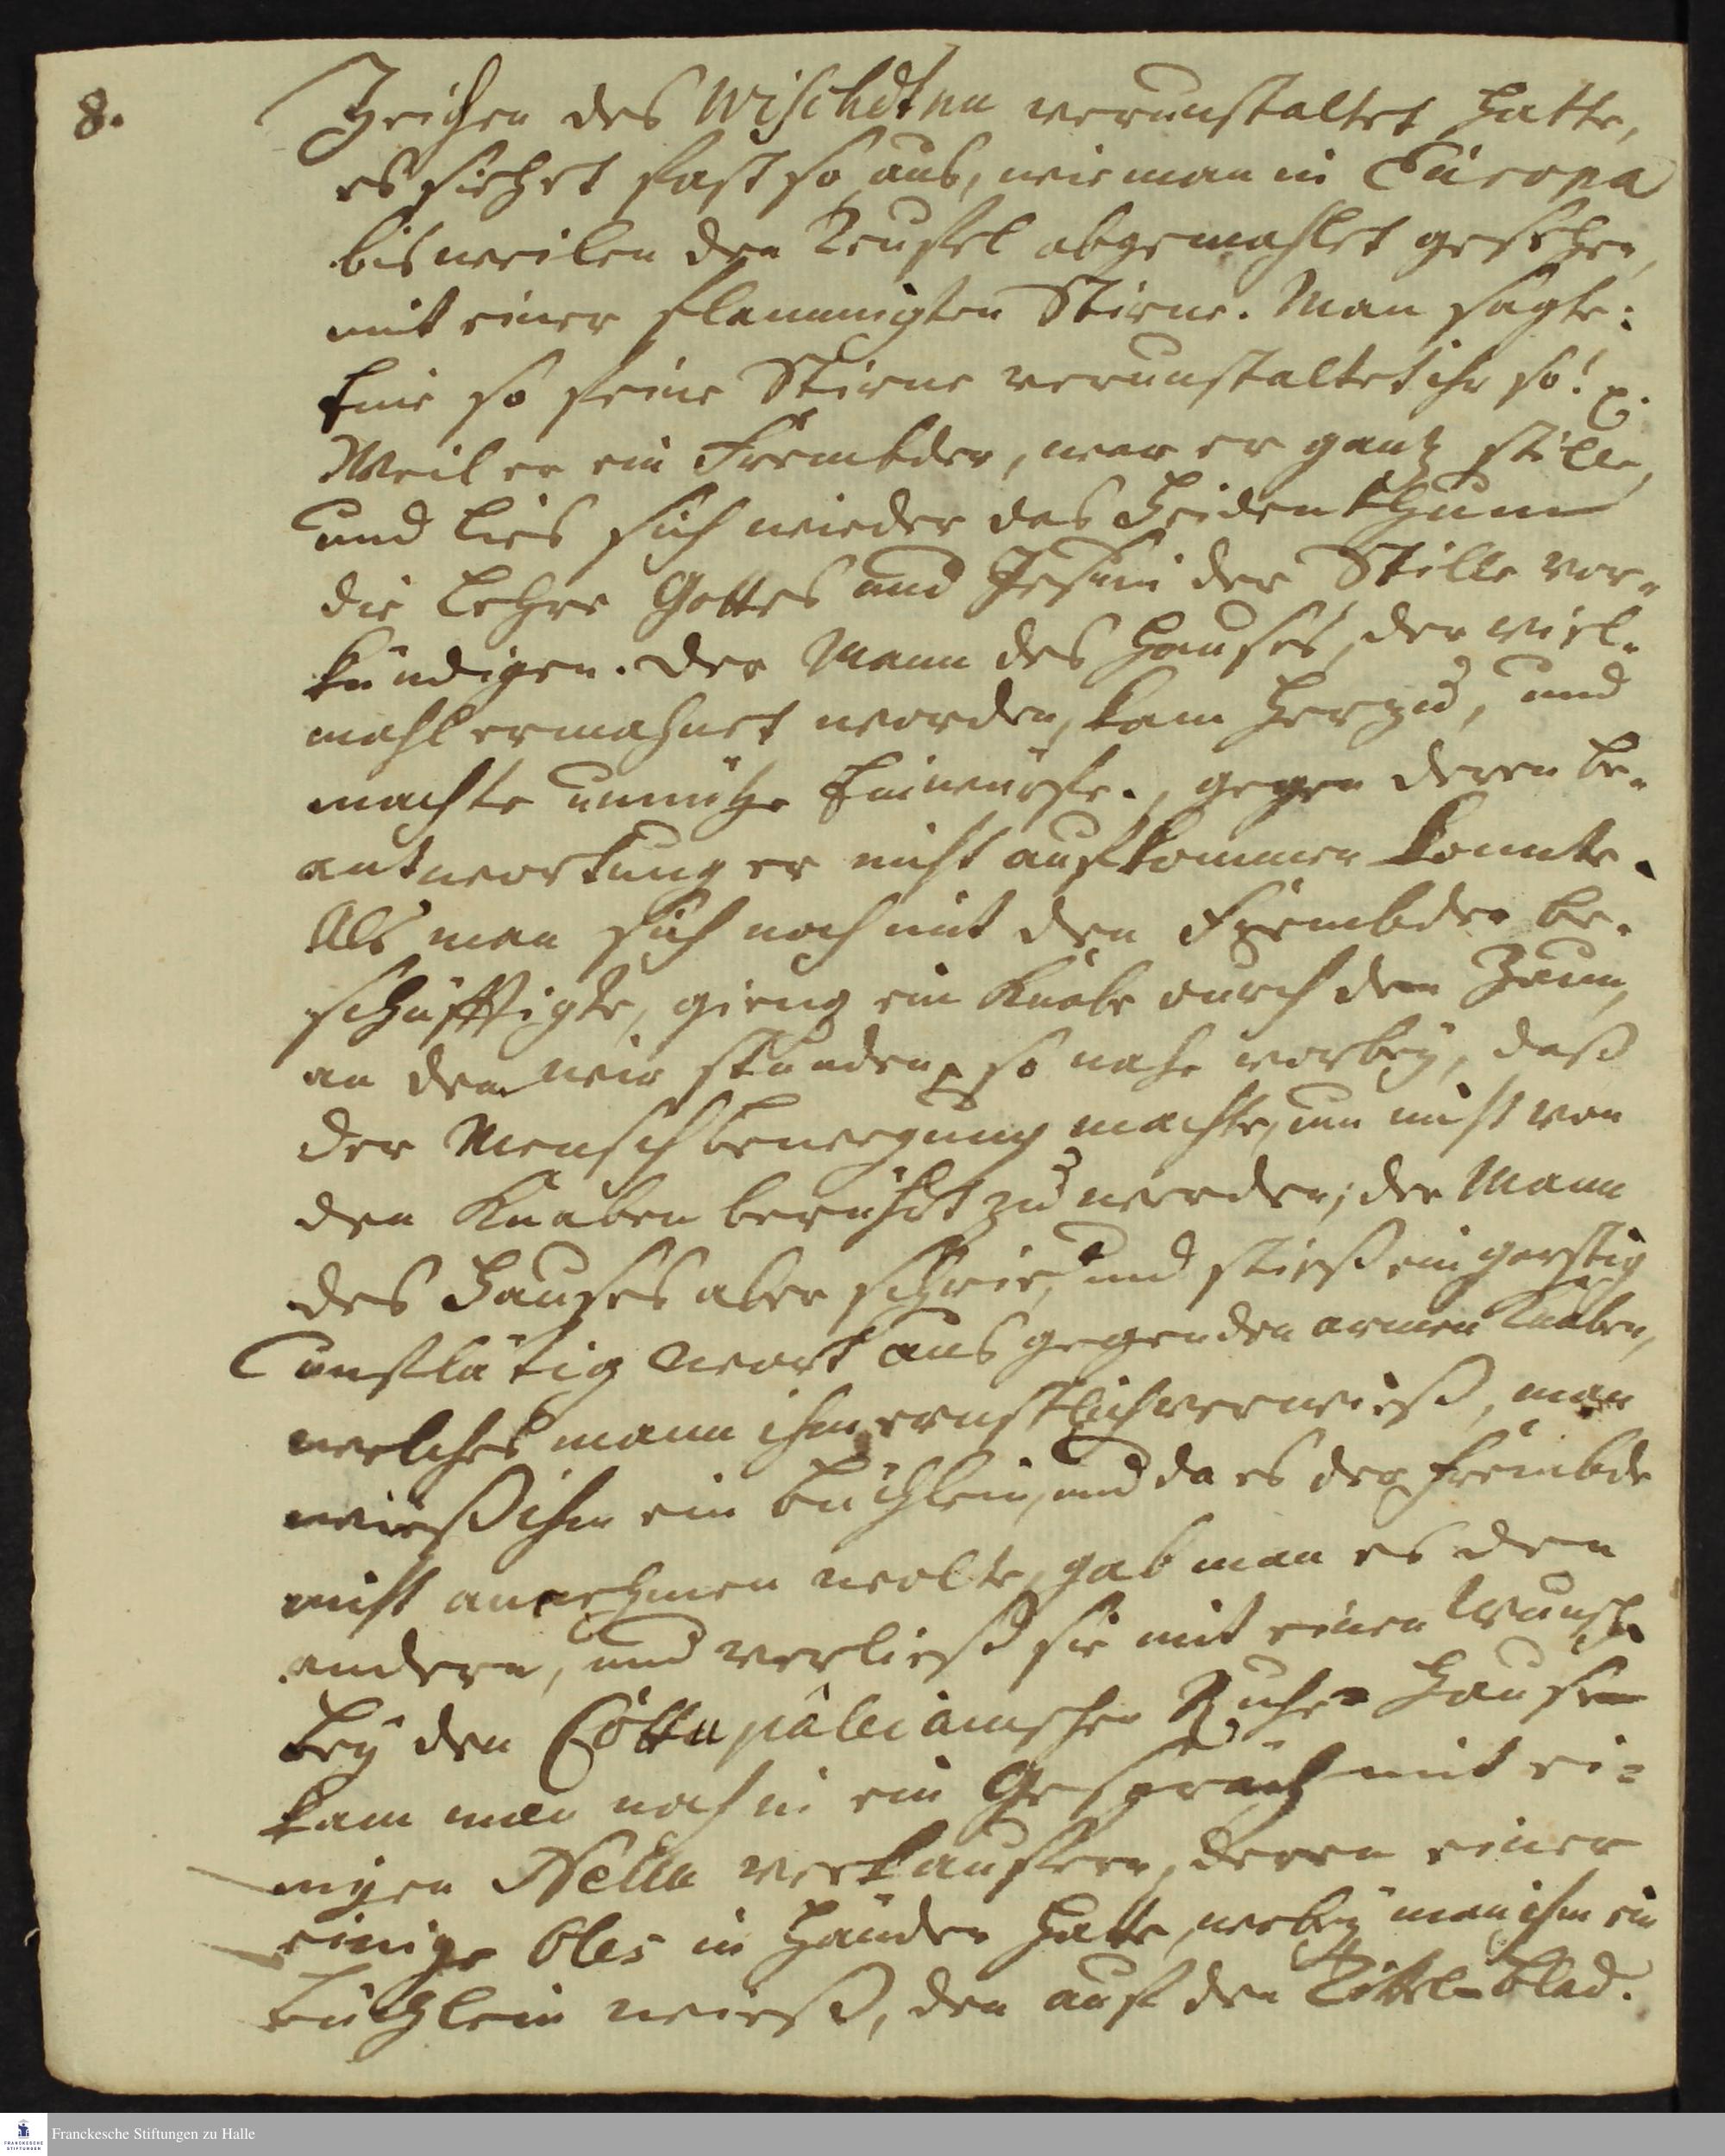 8.
Zeichen des Wischdtnu verunstaltet hatte,
es siehet fast so aus, wie man in Europa
bisweilen den Teufel abgemahlet gesehen,
mit einer flammigten Stirne. Man sagte:
Eine so feine Stirne verunstaltet ihr so!
Weil er ein Frembder, war er gantz stille,
und lies sich wieder das Heidenthum
die Lehre Gottes und Jesum der Stille ver-
kündigen. Der Mann des Hauses, der viel-
mahl ermahnet worden, kam herzu, und
machte unnütze Einwürfe, gegen deren Be-
antwortung er nicht aufkommen konnte.
Als man sich noch mit den Frembden be-
schäfftigte, gieng ein Knabe durch den Zaun,
an dem wir stunden, so nahe vorbey, daß
der Mensch bewegung machte, um nicht von
den Knaben berührt zu werden; der Mann
des Hauses aber schrie, und stieß ein garstig
unflätig Wort aus gegen den armen Knaben,
welches mann ihm ernstlich verwieß, man
wieß ihm ein büchlein, und da es der frembde
nicht annehmen wolte, gab man es den
andern, und verließ sie mit einen Wunsch.
Bey den Cöttupâleiamschen Ruhe-Hause
kam man noch in ein Gespräch mit ei-
nigen Nellu verkauffern, deren einer
einige Oles in Händen hatte, wobey man ihm ein
büchlein wieß, den auf den Tittel-Blad.
Franckesche Stiftungen zu Halle